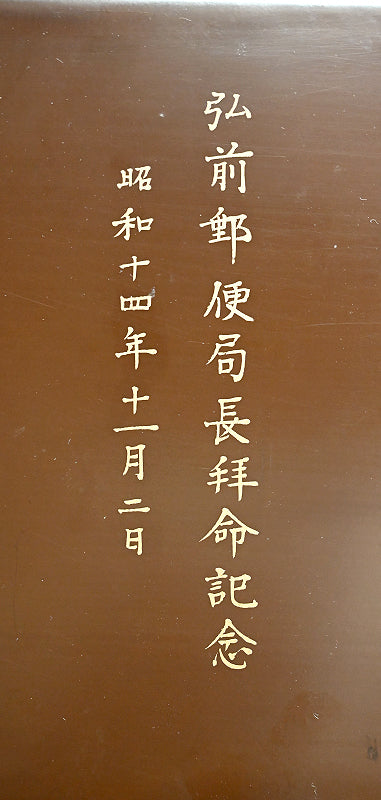 弘前郵便局長拜命記念
昭和十四年十一月二日